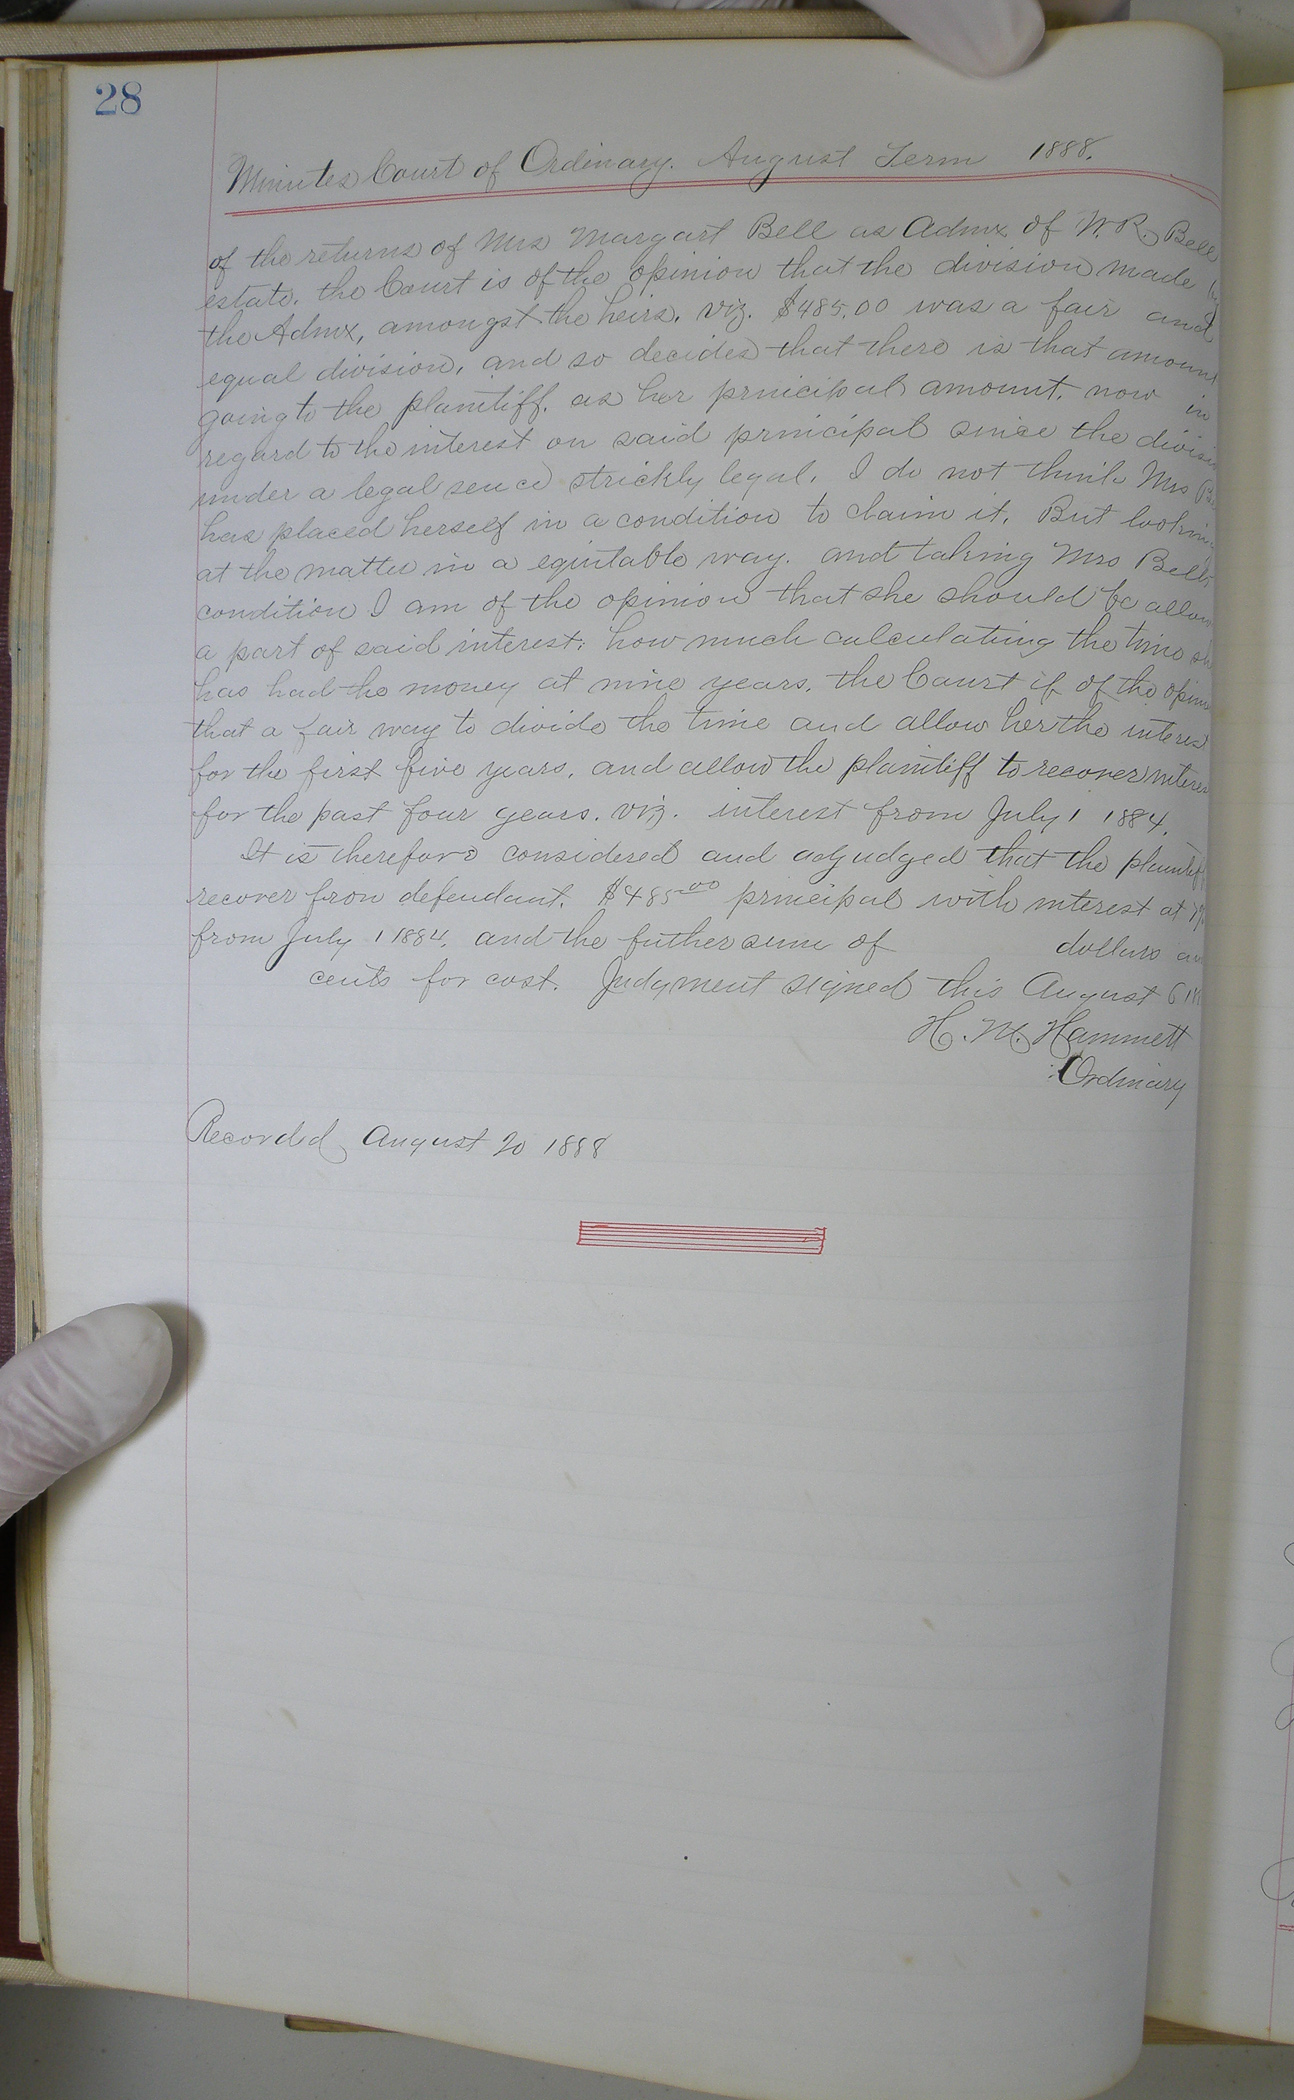 28
Minutes Court of Ordinary. August Term 1888.
of the returns of Mrs Margart Bell as Admx of W. R. Bell
estate. the Court is of the opinion that the division made
the Admx, amongst the heirs. viz. $485.00 was a fair and
equal division, and so decides that there is that amount
going to the plaintiff. as her principal amount. now in
regard to the interest on said principal since the divisi
under a legal sence strickly legal. I do not think Mrs
has placed herself in a condition to claim it. But lookin
at the matter in a equitable way. and taking Mrs Bells
condition I am of the opinion that she should be allow
a part of said interest; how much calculating the time sh
has had the money at nine years. the Court if of the opin
that a fair way to divide the time and allow her the interes
for the first five years. and allow the plaintiff to recover interes
for the past four years. viz. interest from July 1 1884.
It is therefore considered and adjudged that the plaintiff
recover from defendant. $485.00 principal with interest at
from July 1 1884. and the futher sum of dollars an
cents for cost. Judgment signed this August 6
H. M. Hammett
Ordinary
Recorded August 20 1888